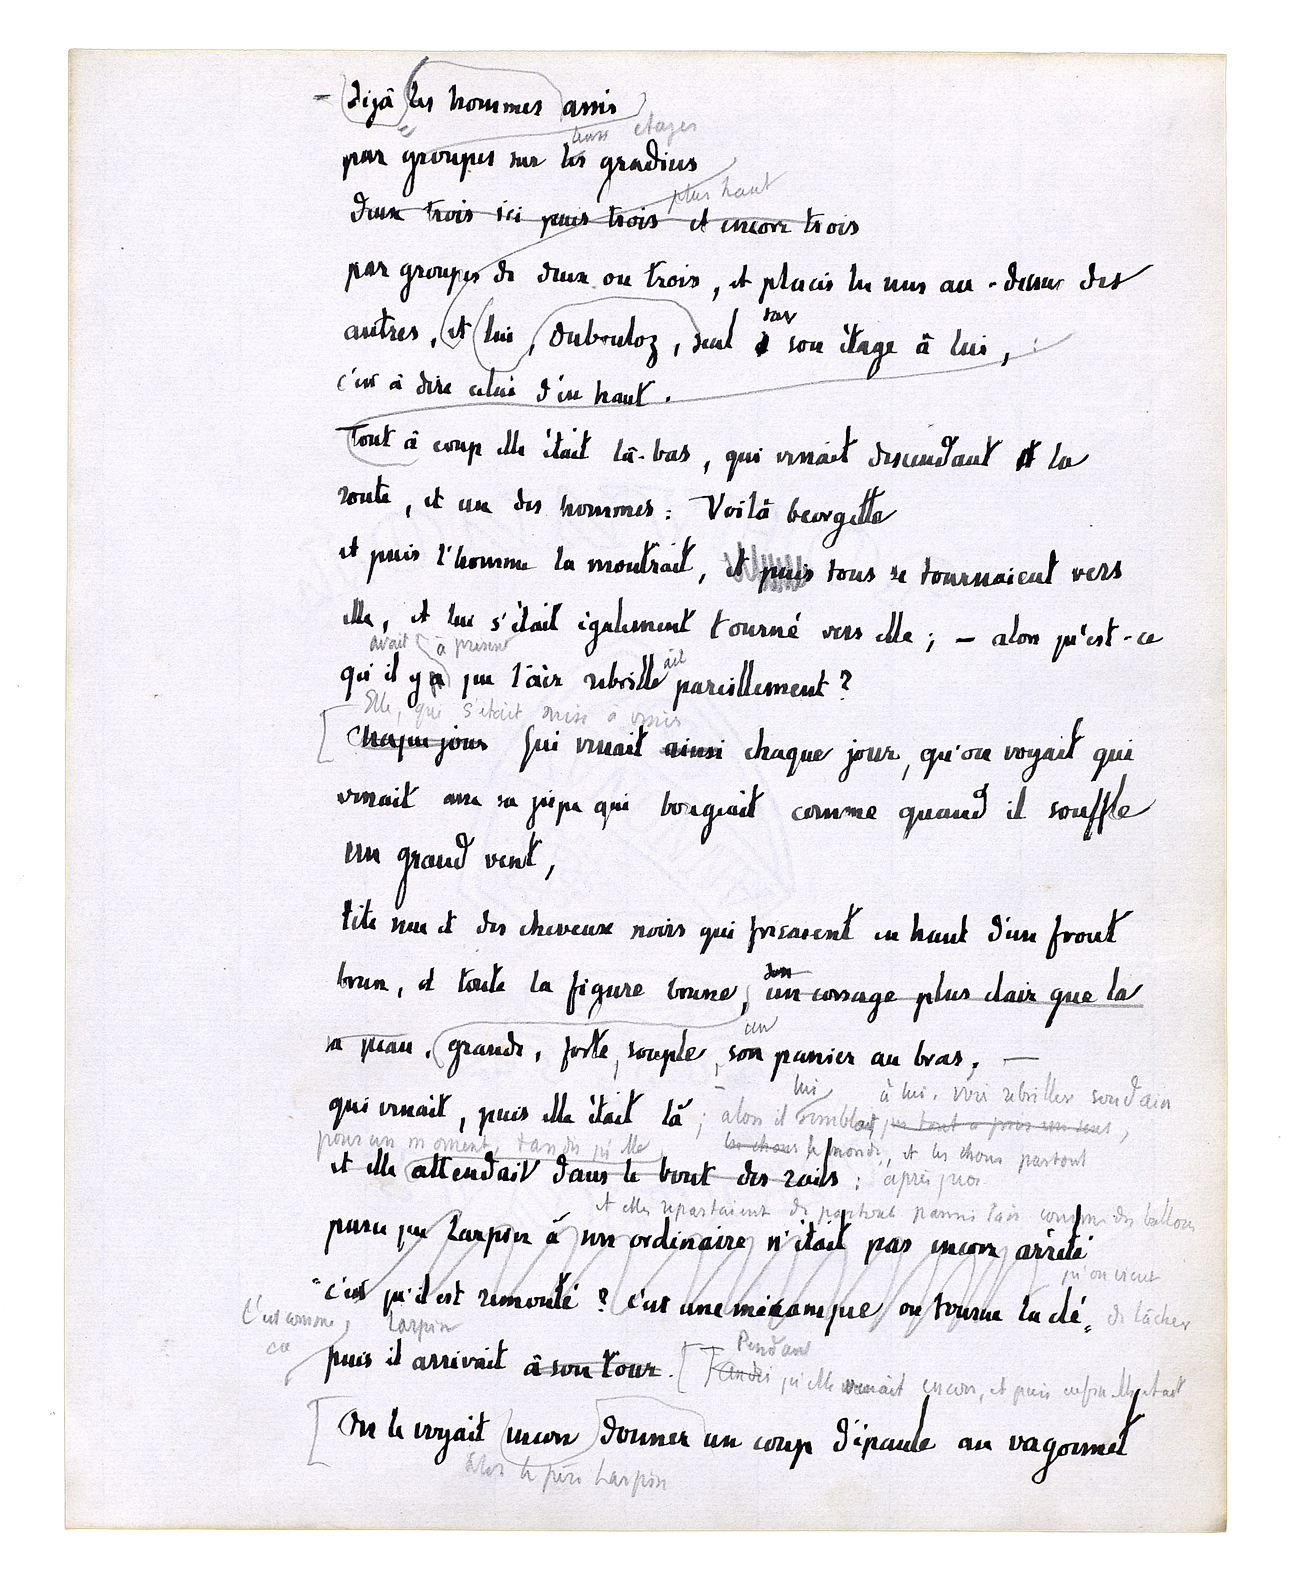 - Déjà les hommes assis
leurs étages
par groupes sur les gradins
plus haut
deux trois ici puis trois et encore trois
par groupes de deux ou trois, et placés les uns au-dessus des
autres, et lui, Dubouloz, seul à son étage à lui,
sur
c'est à dire celui d'en haut.
Tout à coup elle était là-bas, qui venait descendant la
route, et un des hommes : Voilà Georgette
et puis l'homme la montrait, et puis tous se tournaient vers
elle, et lui s'était également tourné vers elle ; — alors qu'est-ce
avait à présent
qu'il y a que l'air rebrille pareillement ?
ait
Elle, qui s'était mise à venir
Chaque jour Qui venait ainsi chaque jour, qu'on voyait qui
venait avec sa jupe qui bougeait comme quand il souffle
un grand vent,
tête nue et des cheveux noirs qui frisaient en haut d'un front
brun, et toute la figure brune, un corsage plus clair que la
son
sa peau, grande, forte, souple, son panier au bras, —
un
qui venait, puis elle était là ; alors il semblait que tout a pris un sens,
lui à lui, voir rebriller soudain
pour un moment, tandis qu'elle
les choses le monde, et les choses partout
et elle attendait dans le bout des rails :
après quoi
et elles repartaient de partout parmi l'air comme des ballons
parce que Larpin à son ordinaire n'était pas encore arrêté
qu'on vient
"c'est qu'il est remonté ? c'est une mécanique on tourne la clé"
de lâcher
C'est comme ça
Larpin
puis il arrivait à son tour. [Tandis qu'elle venait encore, et puis enfin elle était
Pendant
On le voyait encore donner un coup d'épaule au vagonnet
Alors le père Larpin